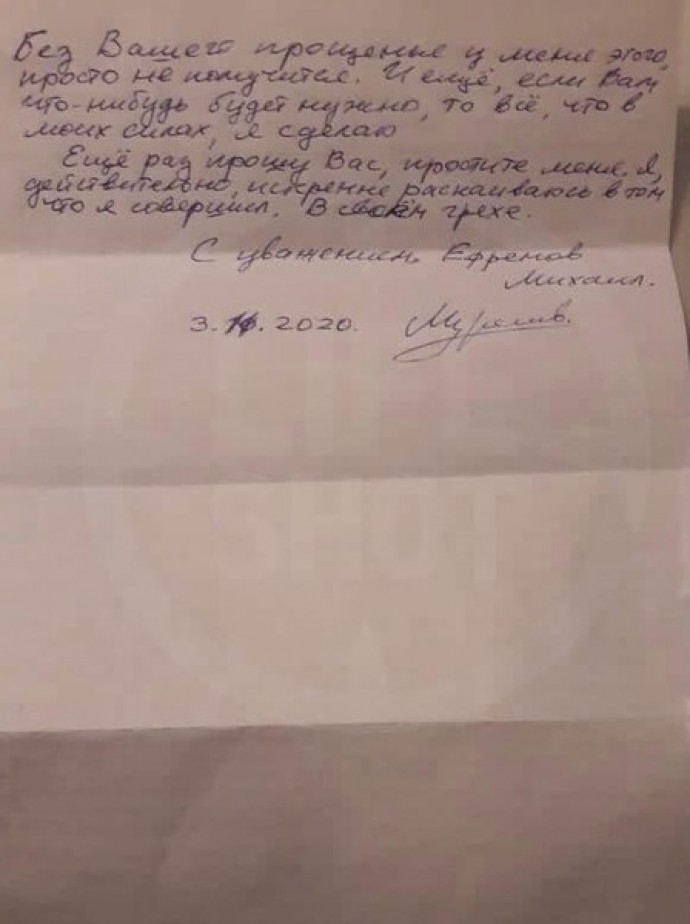 Без Вашего прощенья у меня этого,
просто не получится. И ещё, если Вам
что-нибудь будет нужно, то всё, что в
моих силах, я сделаю
Ещё раз прошу Вас, простите меня. Я,
действительно, искренне раскаиваюсь в том
что я совершил. В своём грехе.
С уважением, Ефремов
Михаил.
3. 2020.
LIFE
SHOT